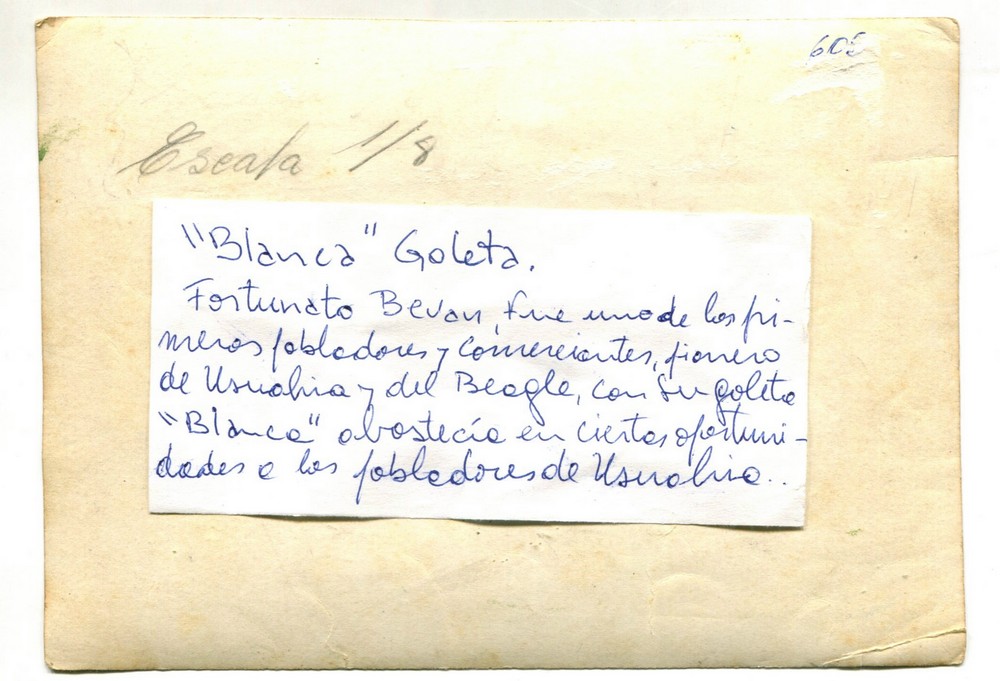 605
Escala 1/8
"Blanca" Goleta.
Fortunato Beván, fue uno de los pi-
meros pobladores y comerciantes, pionero
de Usuahia y del Beagle, con su goleta
"Blanca" abastecía en ciertas oportuni-
dades a los pobladores de Usuahia..